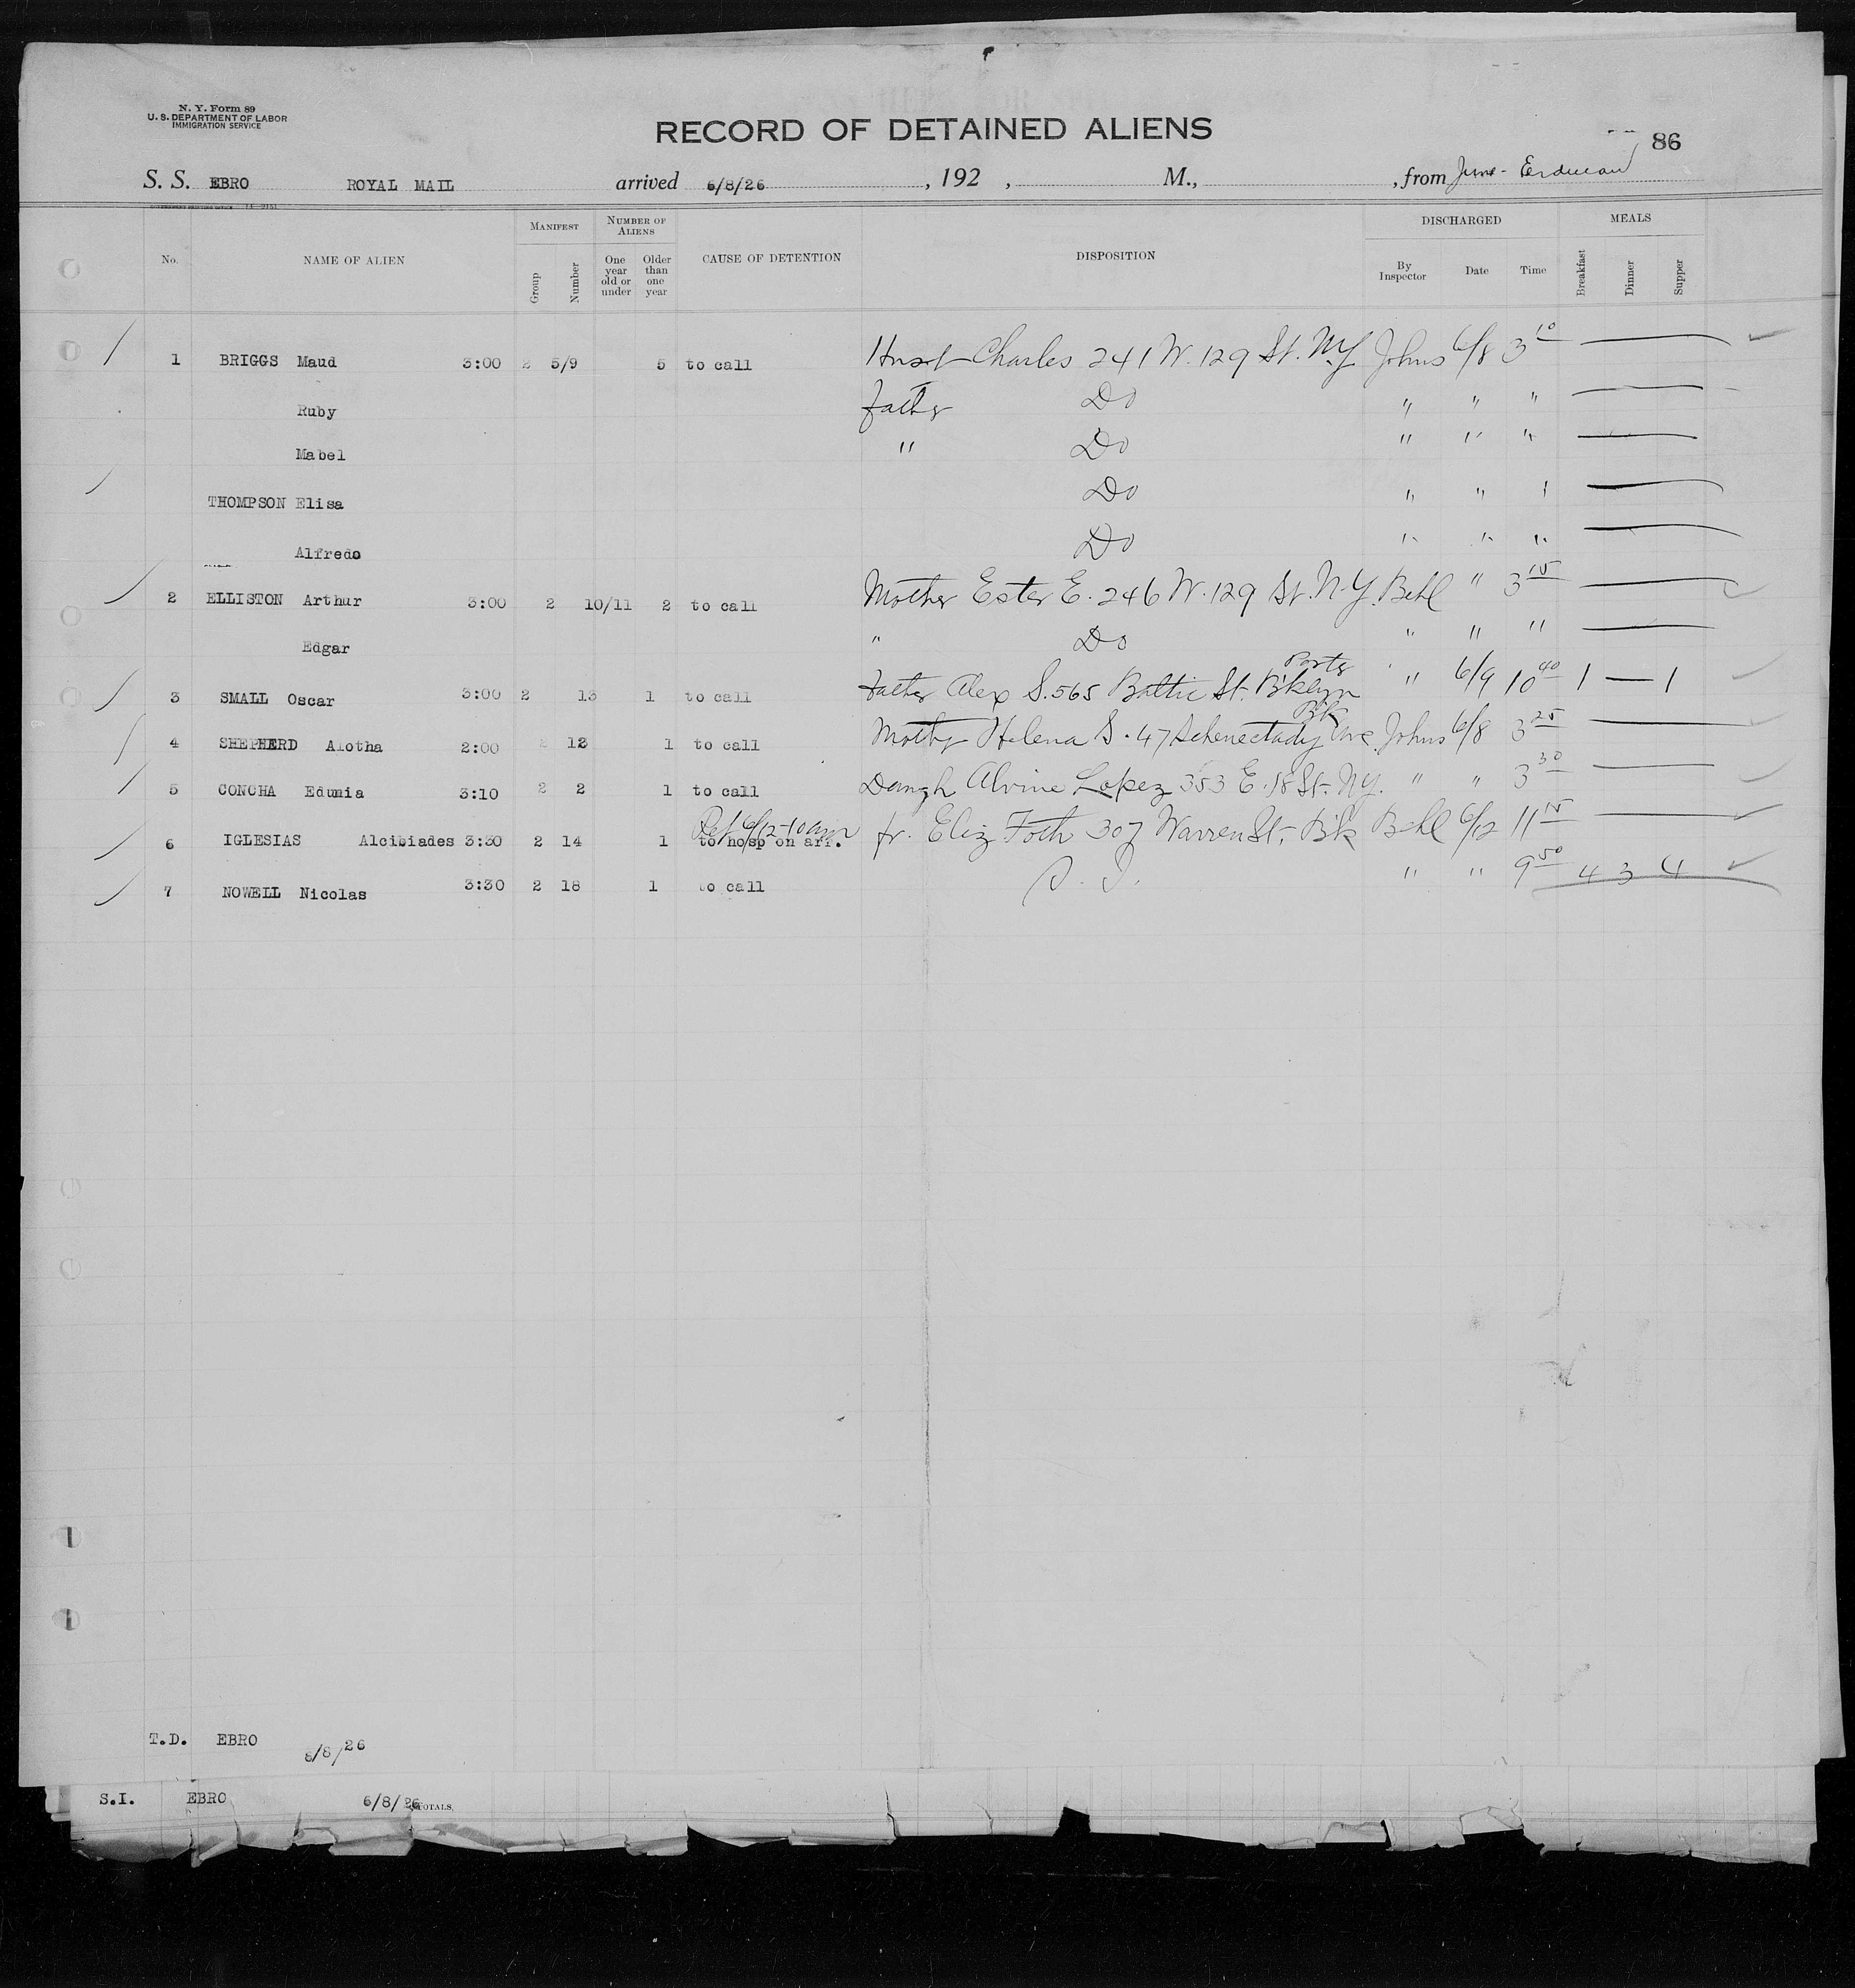 N. Y. Form 89
U. S. DEPARTMENT OF LABOR
IMMIGRATION SERVICE
RECORD OF DETAINED ALIENS
86
S. S. EBRO ROYAL MAIL arrived 6/8/26, 192 , M., , from
No. NAME OF ALIEN MANIFEST Group Number NUMBER OF ALIENS One year old or under Older than one year CAUSE OF DETENTION DISPOSITION DISCHARGED By Inspector Date Time MEALS Breakfast Dinner Supper
1 BRIGGS Maud 3:00 2 5/9 5 to call Husb Charles 241 W. 129 St. N.Y. Johns 6/8 3 10
Ruby Father Do " " "
Mabel " Do " " "
THOMPSON Elisa Do " "
Alfredo Do " " "
2 ELLISTON Arthur 3:00 2 10/11 2 to call Mother Ester E. 246 W. 129 St. N.Y. Behl " 3 15
Edgar " Do " " "
3 SMALL Oscar 3:00 2 13 1 to call Father Alex S. 565 Baltic St. Bklyn " 6/9 10 40 1 — 1
4 SHEPHERD Alotha 2:00 2 12 1 to call Mother Helena S. 47 Schenectady Ave Bk Johns 6/8 3 25
5 CONCHA Edumia 3:10 2 2 1 to call Daugh Alvine Lopez 353 E. 18 St. N.Y. " " 3 30
6 IGLESIAS Alcibiades 3:30 2 14 1 Ref 6/12-10am to hosp on arr. fr. Eliz Foth 307 Warren St. Bk Behl 6/12 11 15
7 NOWELL Nicolas 3:30 2 18 1 to call S. I. " " 9 50 4 3 4
T.D. EBRO 6/8/26
S.I. EBRO 6/8/26 TOTALS,